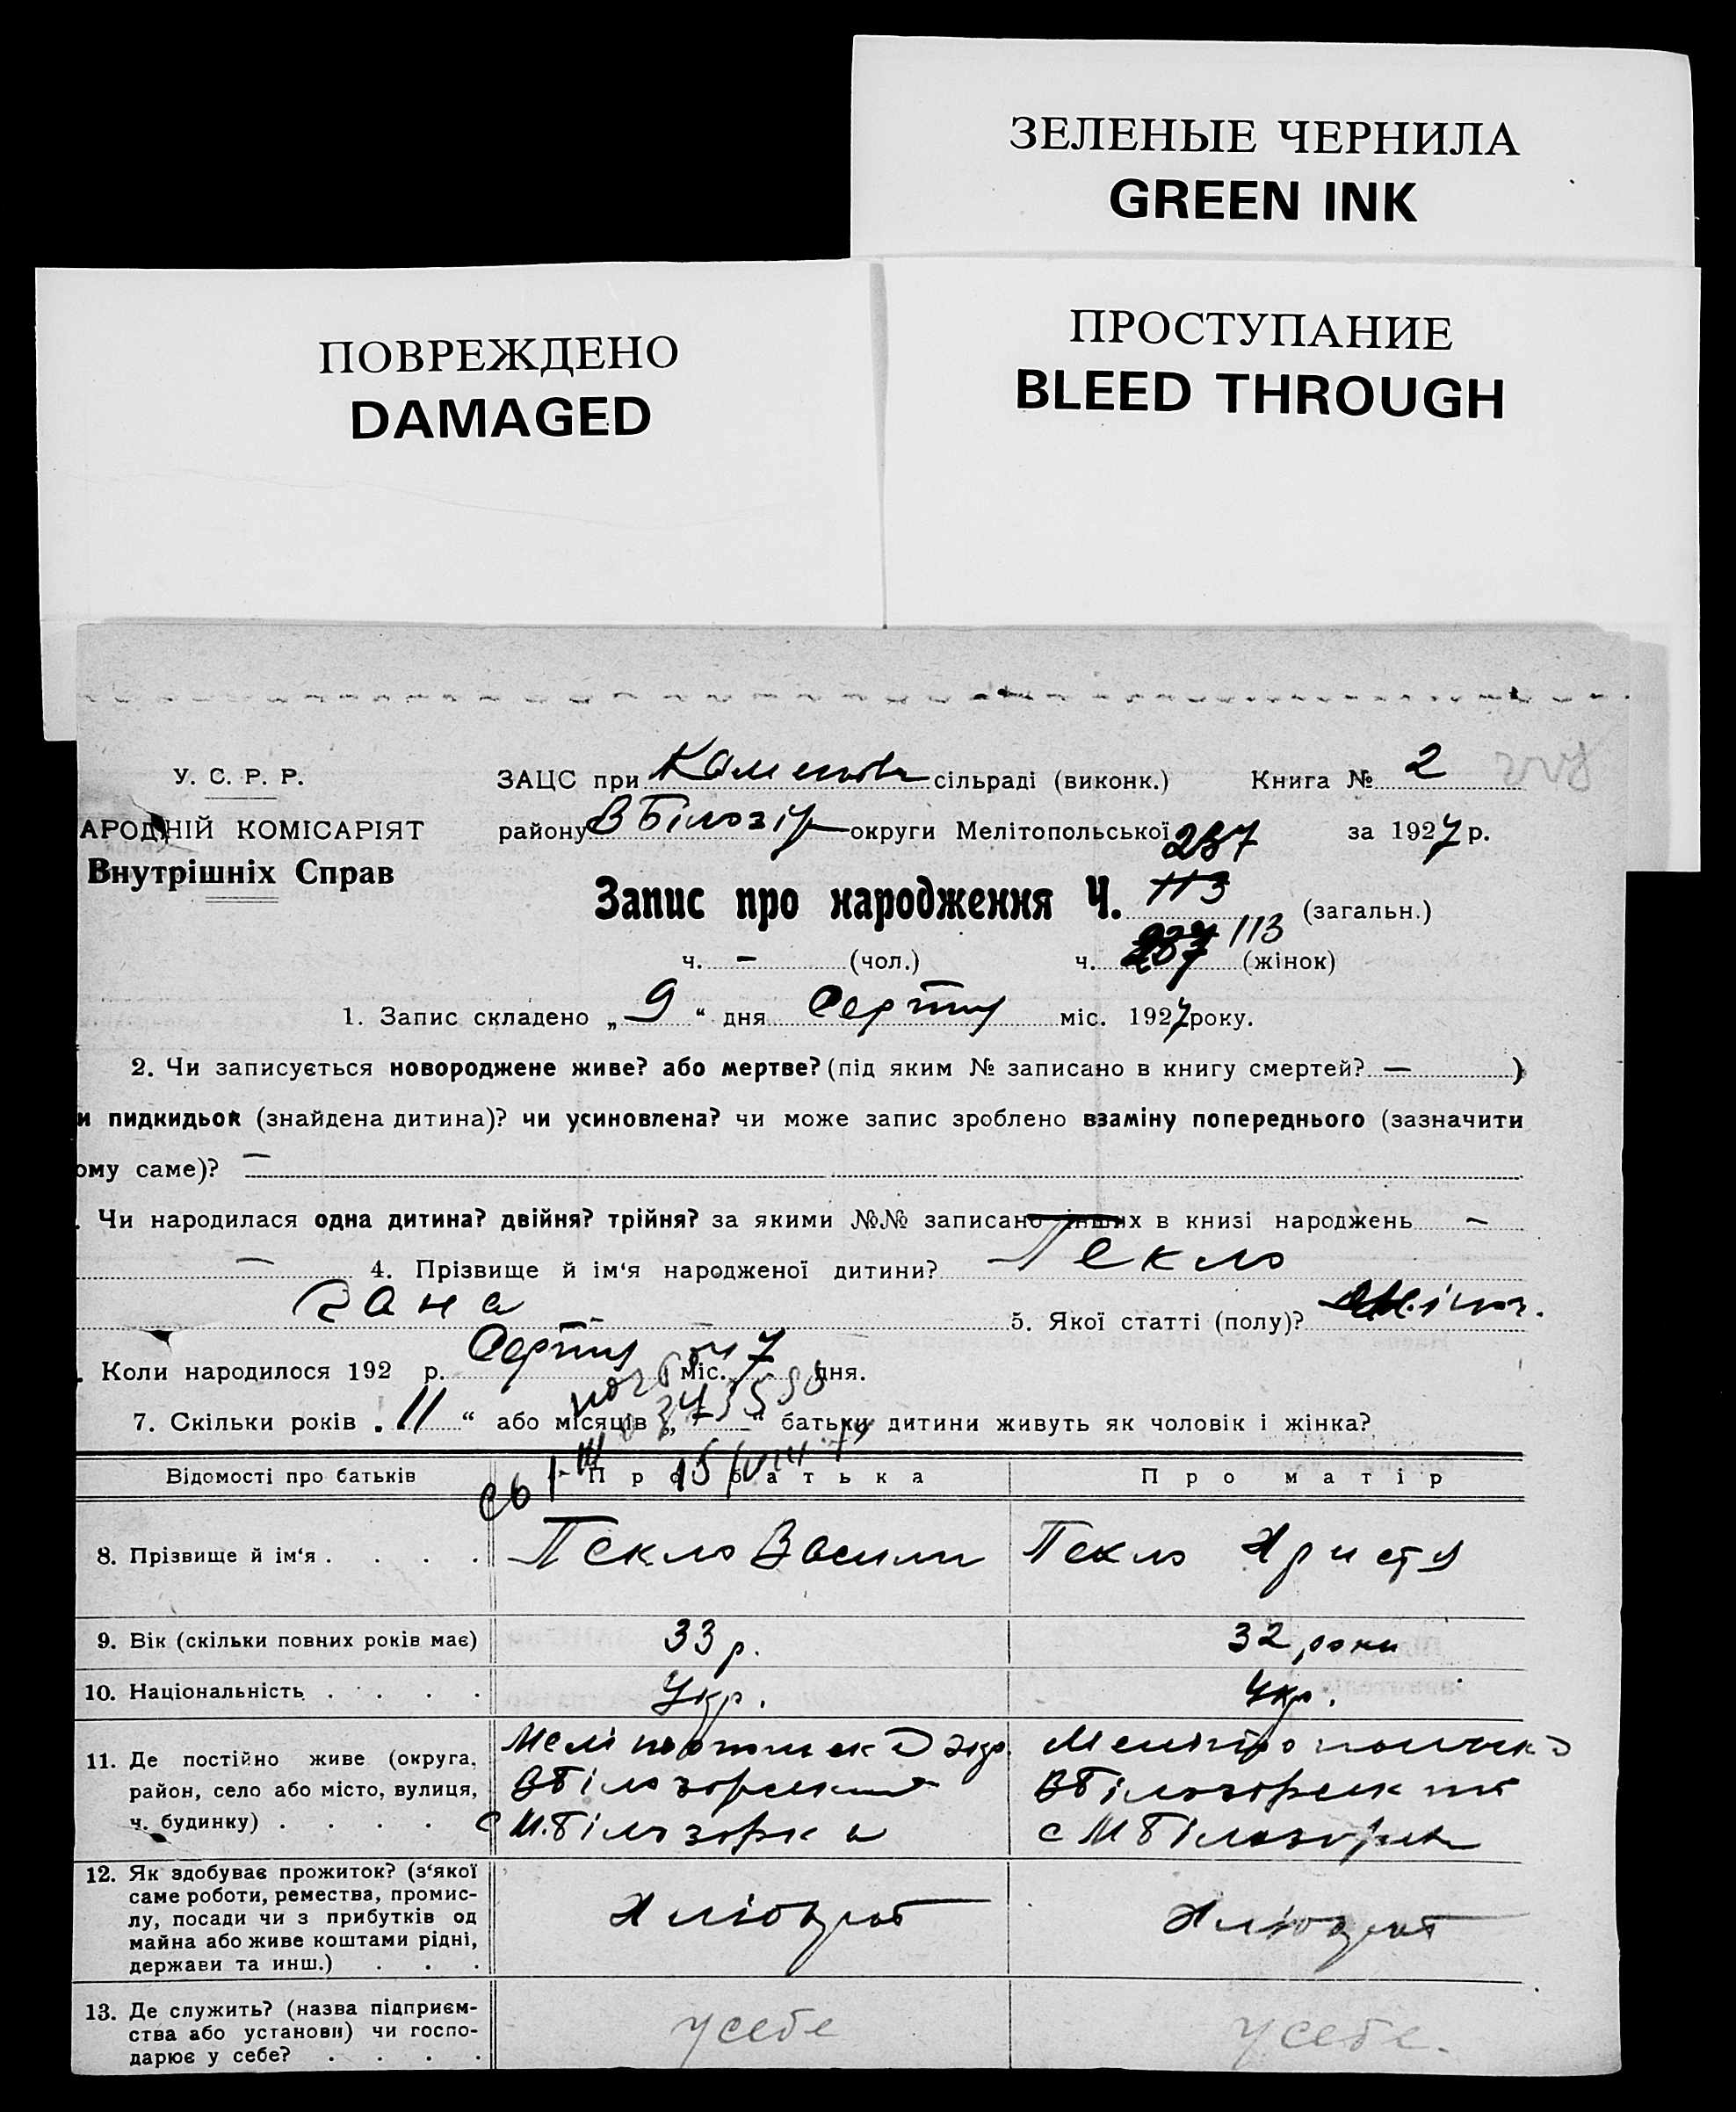 ЗЕЛЕНЫЕ ЧЕРНИЛА
GREEN INK
ПОВРЕЖДЕНО
DAMAGED
ПРОСТУПАНИЕ
BLEED THROUGH
У. С. Р. Р. ЗАЦС при сільраді (виконк.) Книга № 2
АРОДНІЙ КОМІСАРІЯТ району В Білозір округи Мелітопольської за 1927 р.
Внутрішніх Справ
Запис про народження Ч. 113 (загальн.)
ч. — (чол.) ч. 113 (жінок)
1. Запис складено „ 9 “ дня міс. 1927 року.
2. Чи записується новороджене живе? або мертве? (під яким № записано в книгу смертей? — )
и пидкидьок (знайдена дитина)? чи усиновлена? чи може запис зроблено взаміну попереднього (зазначити
ому саме)? —
. Чи народилася одна дитина? двійня? трійня? за якими №№ записано інших в книзі народжень —
— 4. Прізвище й ім‘я народженої дитини? Пекло
5. Якої статті (полу)?
. Коли народилося 192 р. міс. 7 дня.
7. Скільки років „ 11 “ або місяців „ — “ батьки дитини живуть як чоловік і жінка?
Відомості про батьків Про батька Про матір
8. Прізвище й ім‘я . . . . Пекло Васили Пекло Христя
9. Вік (скільки повних років має) 33 р. 32 роки
10. Національність . . . . Укр. Укр.
11. Де постійно живе (округа,
район, село або місто, вулиця,
ч. будинку) . . . . с М. Білозорка с М Білозорка
12. Як здобуває прожиток? (з‘якої
саме роботи, ремества, промис-
лу, посади чи з прибутків од
майна або живе коштами рідні,
держави та инш.) . . .
Хлібороб Хлібороб
13. Де служить? (назва підприєм-
ства або установи) чи госпо-
дарює у себе? . . . .
у себе у себе.